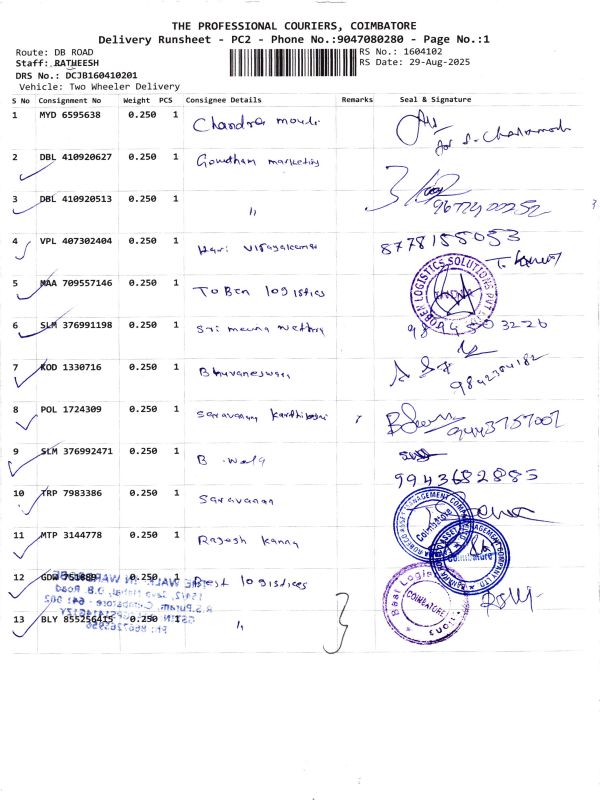 THE PROFESSIONAL COURIERS, COIMBATORE
Delivery Runsheet - PC2 - Phone No.:9047080280 - Page No.:1
Route: DB ROAD
RS No.: 1604102
Staff: RATHEESH
RS Date: 29-Aug-2025
DRS No.: DCJB160410201
Vehicle: Two Wheeler Delivery
S No Consignment No Weight PCS Consignee Details Remarks Seal & Signature
1 MYD 6595638 0.250 1 Chandra mouli
2 DBL 410920627 0.250 1 Gowtham marketing
3 DBL 410920513 0.250 1 "
4 VPL 407302404 0.250 1 Hari Vijayakumar 8778155053
5 MAA 709557146 0.250 1 ToBen logistics
TOBEN LOGISTICS SOLUTIONS PVT
6 SLM 376991198 0.250 1 Sri meena
7 KOD 1330716 0.250 1 Bhuvaneswari 9842784182
8 POL 1724309 0.250 1 Saravanan 9443757007
9 SLM 376992471 0.250 1 B. 9943682885
10 TRP 7983386 0.250 1 Saravanan
ASSET MANAGEMENT COMPANY
Coimbatore
11 MTP 3144778 0.250 1 Rajesh kanna
MANAGEMENT COMPANY LTD
Coimbatore
12 GDW 0.250 1 Best logistices
13 BLY 855256415 0.250 1 "
Best Logis
COIMBATORE